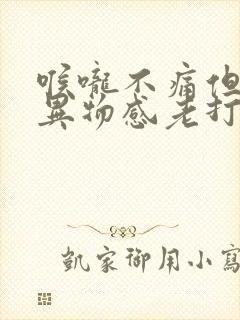 喉嚨不痛但
異物感老打
凱家御用小寫